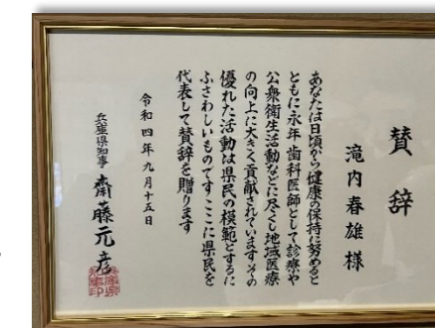 賛辞
滝内春雄様
あなたは日頃から健康の保持に努めると
ともに永年歯科医師として診療や
公衆衛生活動などに尽くし地域医療
の向上に大きく貢献されていますその
優れた活動は県民の模範とするに
ふさわしいものですここに県民を
代表して賛辞を贈ります
令和四年九月十五日
兵庫県知事 齋藤元彦